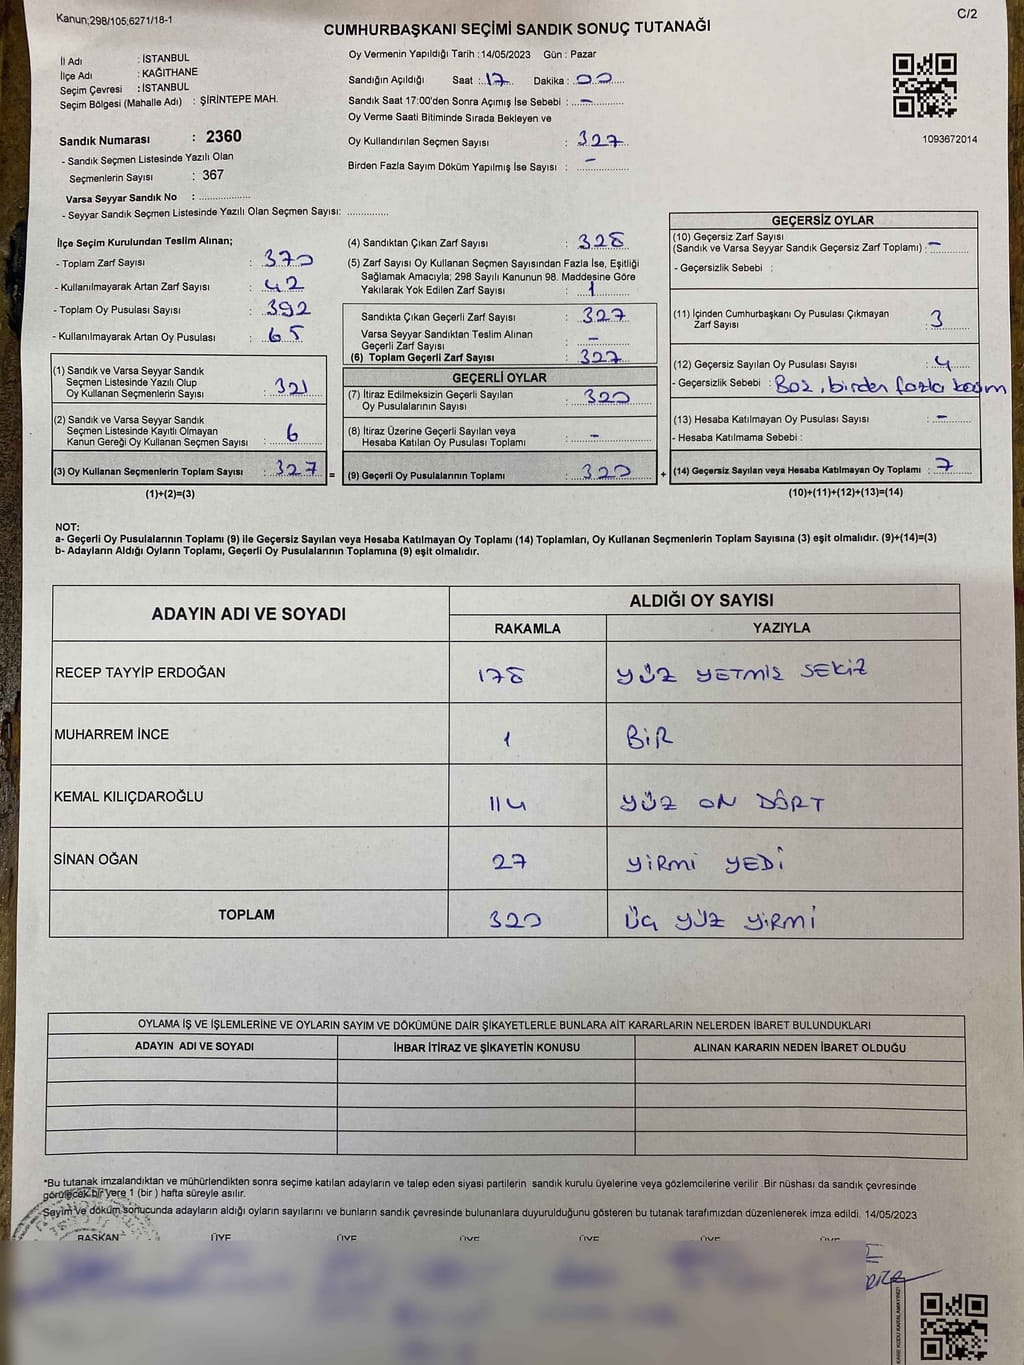 Kanun;298/105;6271/18-1
C/2
CUMHURBAŞKANI SEÇİMİ SANDIK SONUÇ TUTANAĞI
İl Adı : İSTANBUL
İlçe Adı : KAĞITHANE
Seçim Çevresi : İSTANBUL
Seçim Bölgesi (Mahalle Adı) : ŞİRİNTEPE MAH.
Sandık Numarası : 2360
- Sandık Seçmen Listesinde Yazılı Olan
Seçmenlerin Sayısı : 367
Varsa Seyyar Sandık No : ..................
- Seyyar Sandık Seçmen Listesinde Yazılı Olan Seçmen Sayısı: ..............
Oy Vermenin Yapıldığı Tarih : 14/05/2023 Gün : Pazar
Sandığın Açıldığı Saat : 17 Dakika : 00
Sandık Saat 17:00'den Sonra Açımış İse Sebebi : -
Oy Verme Saati Bitiminde Sırada Bekleyen ve
Oy Kullandırılan Seçmen Sayısı : 327
Birden Fazla Sayım Döküm Yapılmış İse Sayısı : -
1093672014
İlçe Seçim Kurulundan Teslim Alınan;
- Toplam Zarf Sayısı : 370
- Kullanılmayarak Artan Zarf Sayısı : 42
- Toplam Oy Pusulası Sayısı : 392
- Kullanılmayarak Artan Oy Pusulası : 65
(1) Sandık ve Varsa Seyyar Sandık
Seçmen Listesinde Yazılı Olup
Oy Kullanan Seçmenlerin Sayısı : 321
(2) Sandık ve Varsa Seyyar Sandık
Seçmen Listesinde Kayıtlı Olmayan
Kanun Gereği Oy Kullanan Seçmen Sayısı : 6
(3) Oy Kullanan Seçmenlerin Toplam Sayısı : 327 =
(1)+(2)=(3)
(4) Sandıktan Çıkan Zarf Sayısı : 328
(5) Zarf Sayısı Oy Kullanan Seçmen Sayısından Fazla İse, Eşitliği
Sağlamak Amacıyla; 298 Sayılı Kanunun 98. Maddesine Göre
Yakılarak Yok Edilen Zarf Sayısı : 1
Sandıkta Çıkan Geçerli Zarf Sayısı : 327
Varsa Seyyar Sandıktan Teslim Alınan
Geçerli Zarf Sayısı : -
(6) Toplam Geçerli Zarf Sayısı : 327
GEÇERLİ OYLAR
(7) İtiraz Edilmeksizin Geçerli Sayılan
Oy Pusulalarının Sayısı : 320
(8) İtiraz Üzerine Geçerli Sayılan veya
Hesaba Katılan Oy Pusulası Toplamı : -
(9) Geçerli Oy Pusulalarının Toplamı : 320 +
GEÇERSİZ OYLAR
(10) Geçersiz Zarf Sayısı
(Sandık ve Varsa Seyyar Sandık Geçersiz Zarf Toplamı) : -
- Geçersizlik Sebebi :
(11) İçinden Cumhurbaşkanı Oy Pusulası Çıkmayan
Zarf Sayısı : 3
(12) Geçersiz Sayılan Oy Pusulası Sayısı : 4
- Geçersizlik Sebebi : Boş, birden fazla basım
(13) Hesaba Katılmayan Oy Pusulası Sayısı : -
- Hesaba Katılmama Sebebi :
(14) Geçersiz Sayılan veya Hesaba Katılmayan Oy Toplamı : 7
(10)+(11)+(12)+(13)=(14)
NOT:
a- Geçerli Oy Pusulalarının Toplamı (9) ile Geçersiz Sayılan veya Hesaba Katılmayan Oy Toplamı (14) Toplamları, Oy Kullanan Seçmenlerin Toplam Sayısına (3) eşit olmalıdır. (9)+(14)=(3)
b- Adayların Aldığı Oyların Toplamı, Geçerli Oy Pusulalarının Toplamına (9) eşit olmalıdır.
ADAYIN ADI VE SOYADI
ALDIĞI OY SAYISI
RAKAMLA YAZIYLA
RECEP TAYYİP ERDOĞAN 178 YÜZ YETMİŞ SEKİZ
MUHARREM İNCE 1 BİR
KEMAL KILIÇDAROĞLU 114 YÜZ ON DÖRT
SİNAN OĞAN 27 YİRMİ YEDİ
TOPLAM 320 ÜÇ YÜZ YİRMİ
OYLAMA İŞ VE İŞLEMLERİNE VE OYLARIN SAYIM VE DÖKÜMÜNE DAİR ŞİKAYETLERLE BUNLARA AİT KARARLARIN NELERDEN İBARET BULUNDUKLARI
ADAYIN ADI VE SOYADI İHBAR İTİRAZ VE ŞİKAYETİN KONUSU ALINAN KARARIN NEDEN İBARET OLDUĞU
*Bu tutanak imzalandıktan ve mühürlendikten sonra seçime katılan adayların ve talep eden siyasi partilerin sandık kurulu üyelerine veya gözlemcilerine verilir. Bir nüshası da sandık çevresinde
görülecek bir yere 1 (bir ) hafta süreyle asılır.
Sayım ve döküm sonucunda adayların aldığı oyların sayılarını ve bunların sandık çevresinde bulunanlara duyurulduğunu gösteren bu tutanak tarafımızdan düzenlenerek imza edildi. 14/05/2023
BAŞKAN ÜYE ÜYE ÜYE ÜYE ÜYE ÜYE